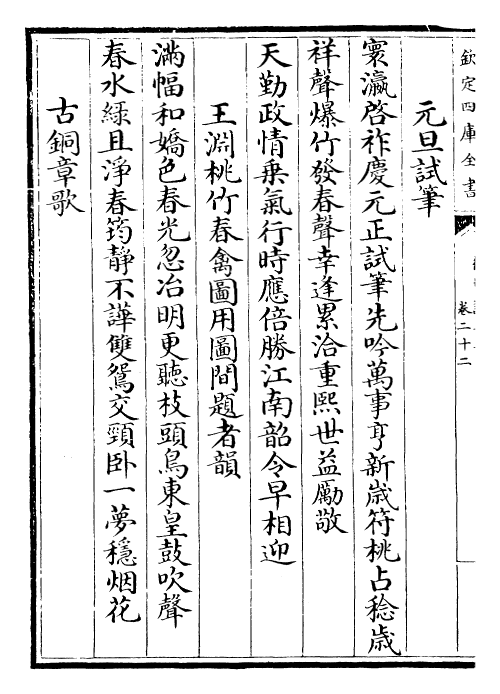 欽定四庫全書
卷二十二
元旦試筆
寰瀛啓祚慶元正試筆先吟萬事亨新歳符桃占稔歳
祥聲爆竹發春聲幸逢累洽重熙世益勵敬
天勤政情乗氣行時應倍勝江南韶令早相迎
王淵桃竹春禽圖用圖間題者韻
滿幅和嬌色春光忽冶明更聽枝頭鳥東皇鼓吹聲
春水緑且淨春筠静不譁雙鴛交頸卧一夢穩烟花
古銅章歌